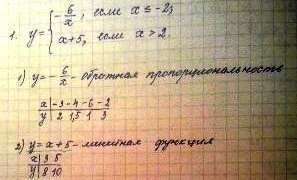 1. y = { -6/x, если x ≤ -2;
x+5, если x > 2.
1) y = -6/x - обратная пропорциональность
x | -3 -4 -6 -2
y | 2 1,5 1 3
2) y = x+5 - линейная функция
x | 3 5
y | 8 10